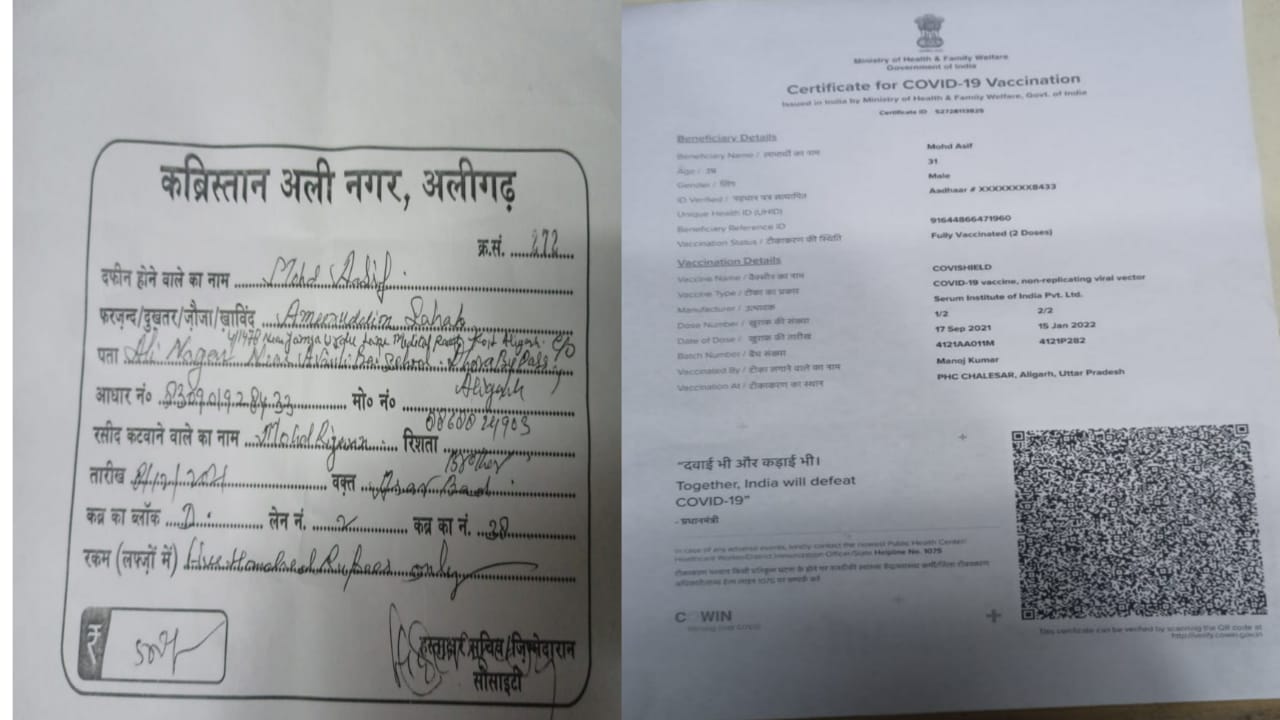 कब्रिस्तान अली नगर, अलीगढ़
क्र.सं. 272
दफीन होने वाले का नाम Mohd
फरज़न्द/दुख़तर/ज़ौजा/ख़ाविंद Ameeruddin
पता Ali Nagar Near School ByPass
Aligarh
आधार नं० मो० नं०
रसीद कटवाने वाले का नाम Mohd Rizwan रिश्ता
Brother
तारीख वक़्त
कब्र का ब्लॉक D. लेन नं. 2 कब्र का नं. 38
रकम (लफ्ज़ों में) Hundred Rupees only
₹
हस्ताक्षर सचिव/ज़िम्मेदारान
सोसाइटी
Ministry of Health & Family Welfare
Government of India
Certificate for COVID-19 Vaccination
Issued in India by Ministry of Health & Family Welfare, Govt. of India
Certificate ID
Beneficiary Details
Beneficiary Name / लाभार्थी का नाम Mohd Asif
Age / उम्र 31
Gender / लिंग Male
ID Verified / पहचान पत्र सत्यापित Aadhaar # XXXXXXXX8433
Unique Health ID (UHID)
Beneficiary Reference ID 91644866471960
Vaccination Status / टीकाकरण की स्थिति Fully Vaccinated (2 Doses)
Vaccination Details
Vaccine Name / वैक्सीन का नाम COVISHIELD
Vaccine Type / टीका का प्रकार COVID-19 vaccine, non-replicating viral vector
Manufacturer / उत्पादक Serum Institute of India Pvt. Ltd.
Dose Number / खुराक की संख्या 1/2 2/2
Date of Dose / खुराक की तारीख 17 Sep 2021 15 Jan 2022
Batch Number / बैच संख्या 4121AA011M 4121P282
Vaccinated By / टीका लगाने वाले का नाम Manoj Kumar
Vaccination At / टीकाकरण का स्थान PHC CHALESAR, Aligarh, Uttar Pradesh
“दवाई भी और कड़ाई भी।
Together, India will defeat
COVID-19”
- प्रधानमंत्री
In case of any adverse events, kindly contact the nearest Public Health Center/
Healthcare Worker/District Immunization Officer/State Helpline No. 1075
COWIN
This certificate can be verified by scanning the QR code at
http://verify.cowin.gov.in